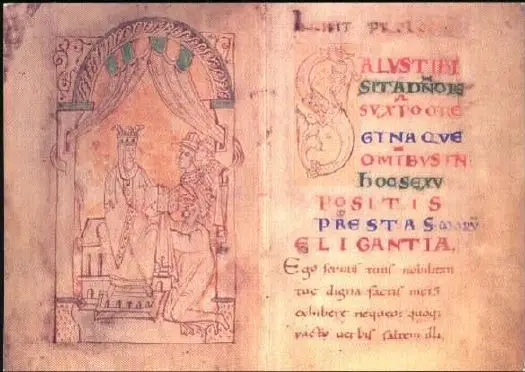 INCIPIT PROLO
SALVS TIBI
SIT A DÑO IE
SV XPO O RE
GINA QVE
OMIBUS IN
hOC SEXV
POSITIS
PRESTAS MORV
ELIGANTIA.
Ego seruus tuus nobilitati
tuę digna factis meis
exhibere nequeo; quoquo
pacto uerbis saltem illi